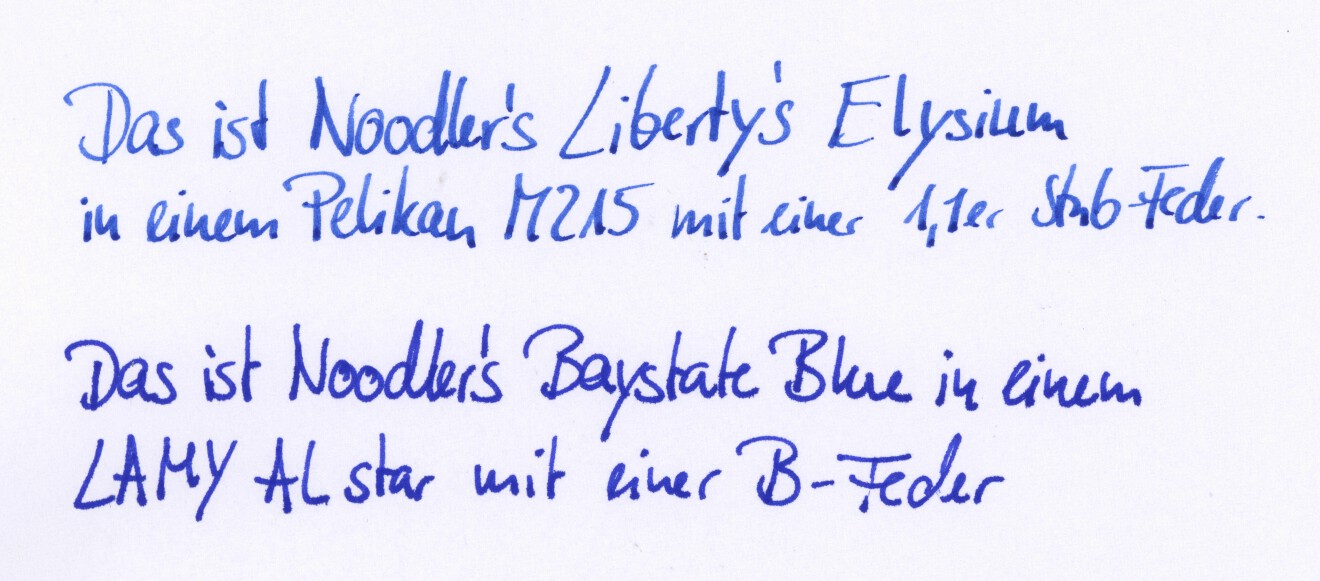 Das ist Noodler's Liberty's Elysium
in einem Pelikan M215 mit einer 1,1er Stub-Feder.
Das ist Noodler's Baystate Blue in einem
LAMY AL star mit einer B-Feder